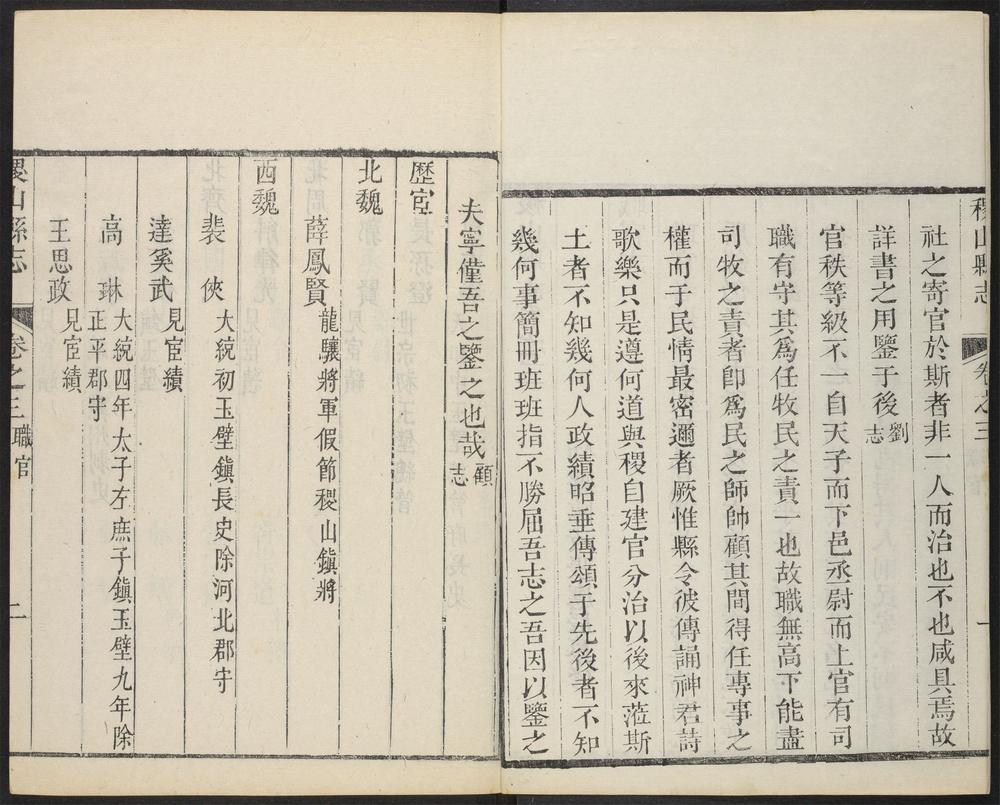 稷山縣志 卷之三 一
社之寄官於斯者非一人而治也不也咸具焉故
詳書之用鑒于後劉志
官秩等級不一自天子而下邑丞尉而上官有司
職有守其爲任牧民之責一也故職無高下能盡
司牧之責者卽爲民之師帥顧其間得任專事之
權而于民情最密邇者厥惟縣令彼傳誦神君詩
歌樂只是遵何道與稷自建官分治以後來蒞斯
土者不知幾何人政績昭垂傳頌于先後者不知
幾何事簡冊班班指不勝屈吾志之吾因以鑒之
夫寧僅吾之鑒之也哉顧志
歷官
北魏
薛鳳賢 龍驤將軍假節稷山鎭將
西魏
裴 俠 大統初玉壁鎭長史除河北郡守
達奚武 見宦績
高 琳 大統四年太子左庶子鎭玉壁九年除正平郡守
王思政 見宦績
稷山縣志 卷之三 職官 二